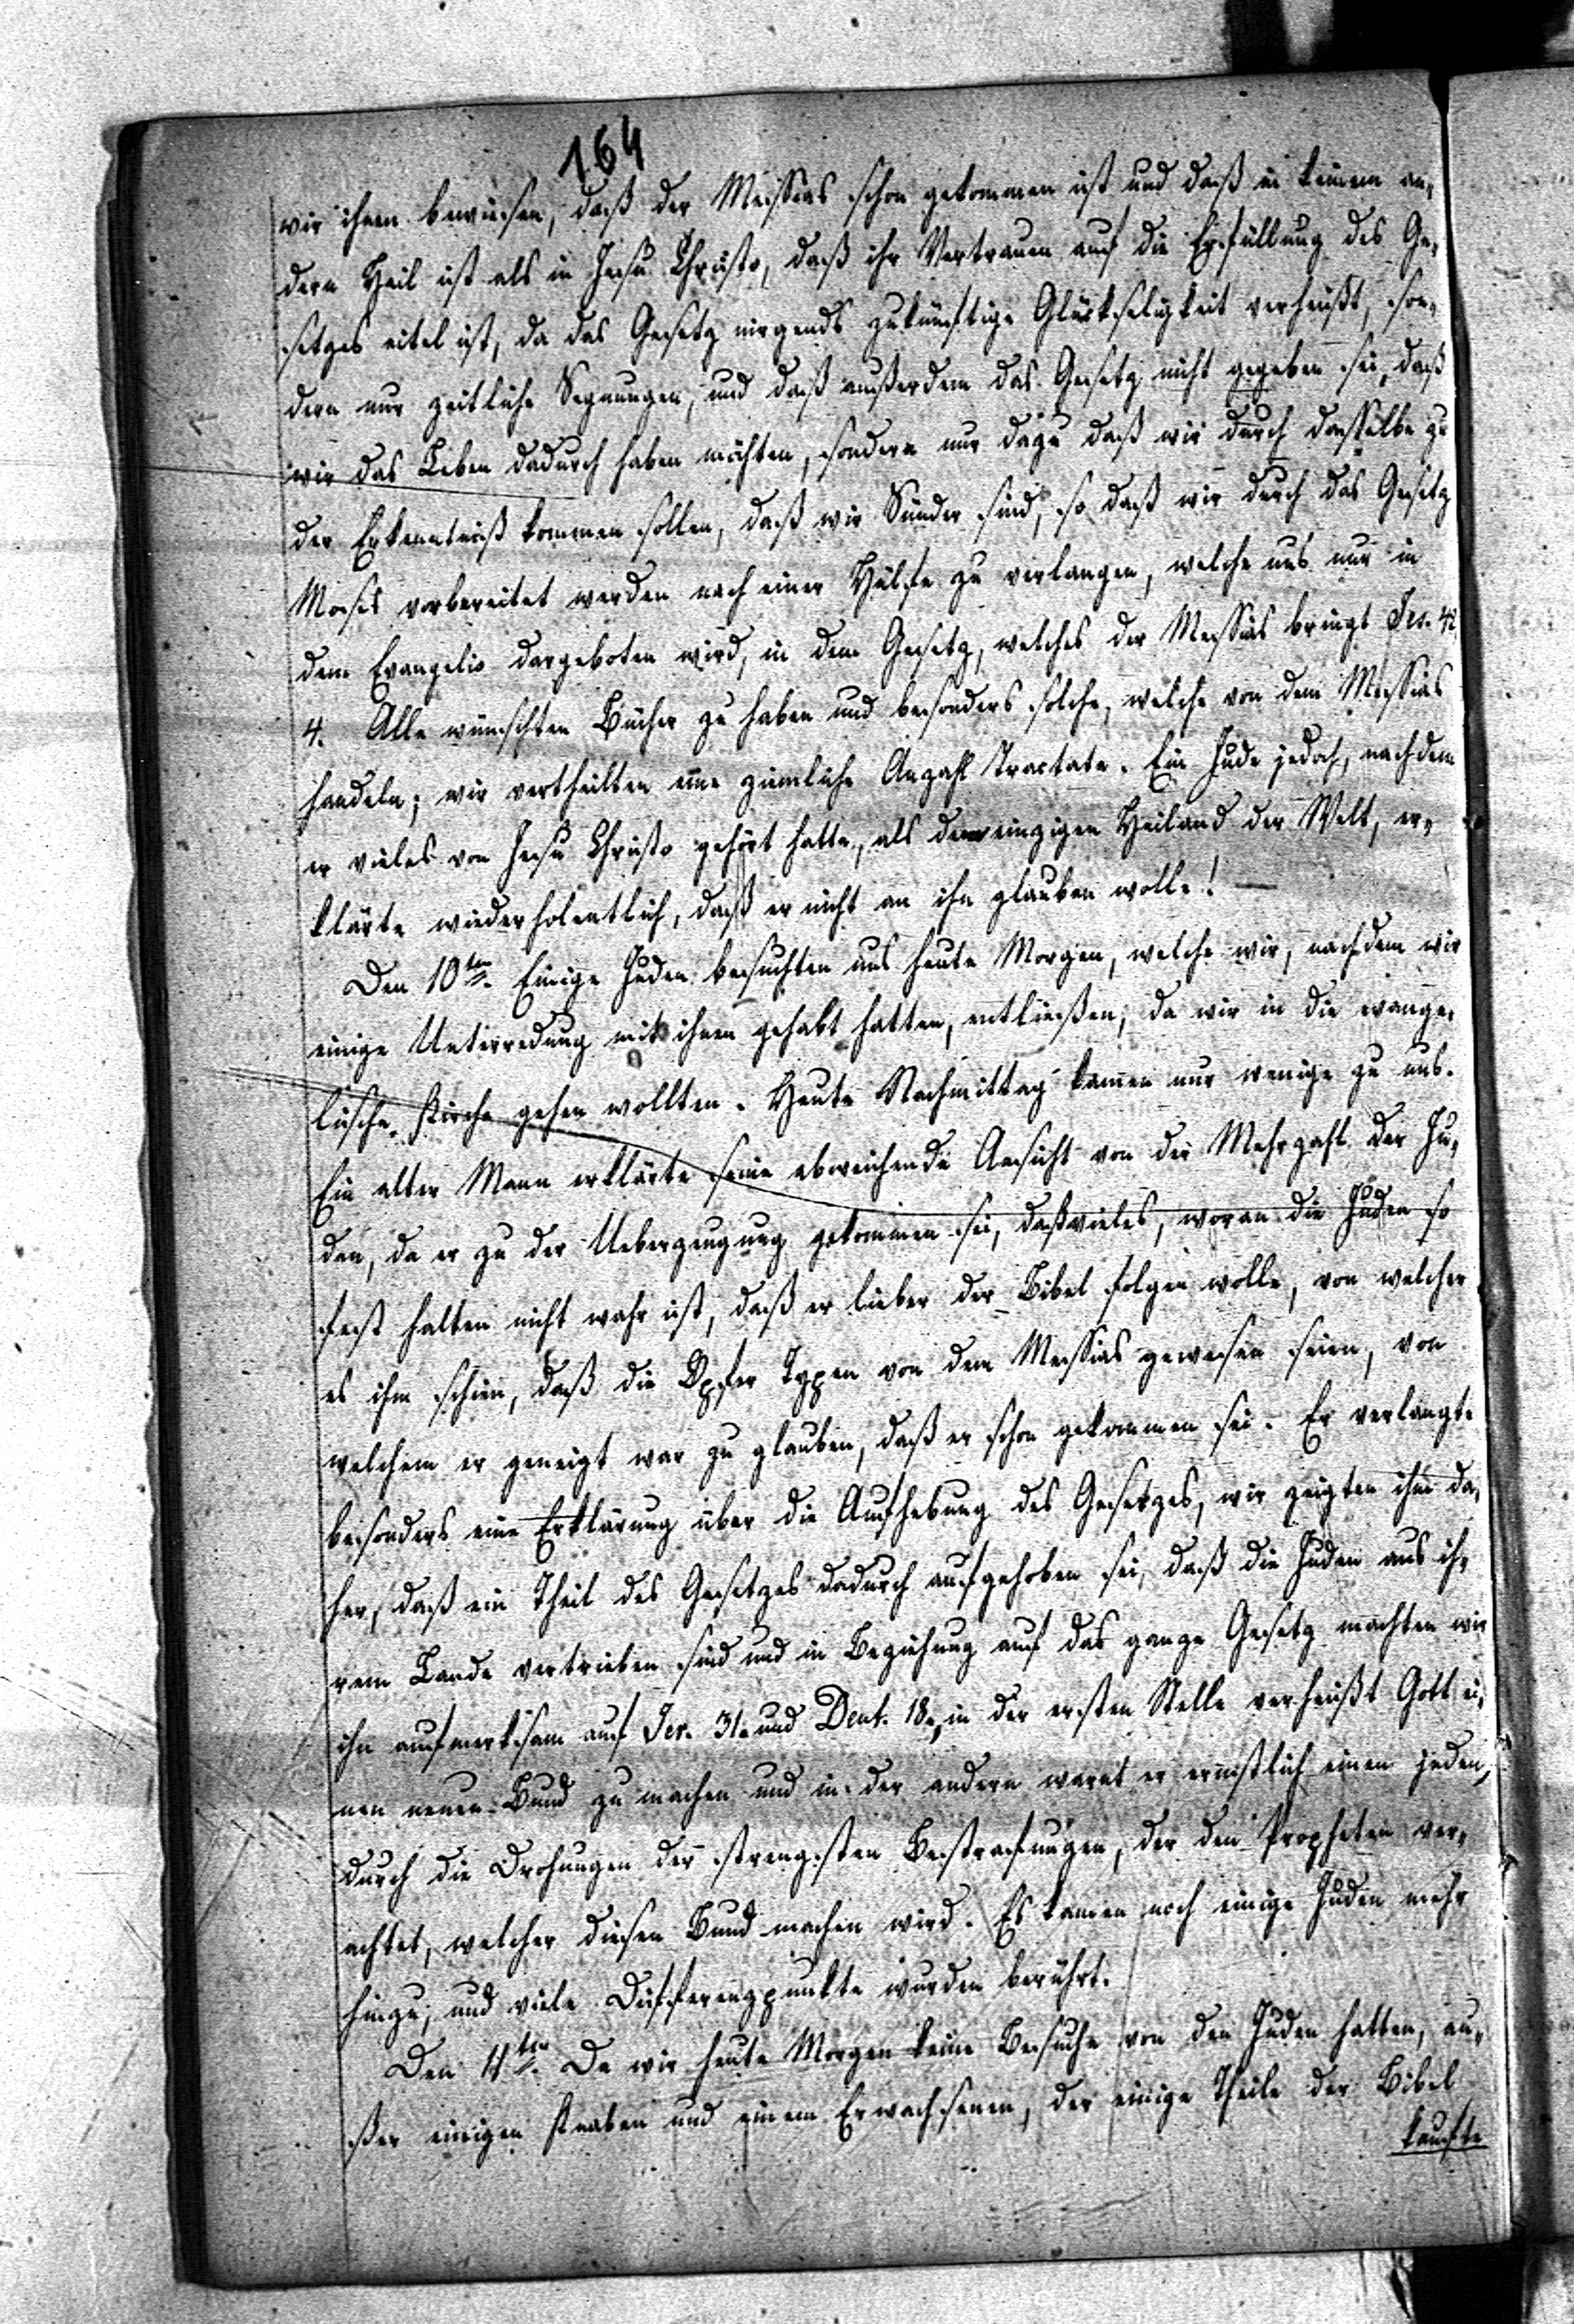 164
wir ihnen bewiesen, daß der Messias schon gekommen ist und daß in keinem an-
dern Heil ist als in Jesu Christo, daß ihr Vertrauen auf die Erfüllung des Ge-
setzes eitel ist, da das Gesetz nirgends zukünftige Glückseligkeit verheißt, son-
dern nur zeitliche Segnungen, und daß außerdem das Gesetz nicht gegeben sei, daß
wir das Leben dadurch haben möchten, sondern nur dazu daß wir durch dasselbe zu
der Erkenntniß kommen sollen, daß wir Sünder sind, so daß wir durch das Gesetz
Moses vorbereitet werden nach einer Hülfe zu verlangen, welche uns nur in
dem Evangelio dargeboten wird, in dem Gesetz, welches der Messias bringt Jes. 42,
4. Alle wünschten Bücher zu haben und besonders solche, welche von dem Messias
handeln; wir vertheilten eine ziemliche Anzahl Tractate. Ein Jude jedoch, nachdem
er vieles von Jesu Christo gehört hatte, als dem einzigen Heiland der Welt, er-
klärte wiederholentlich, daß er nicht an ihn glauben wolle! —
Den 10ten. Einige Juden besuchten uns heute Morgen, welche wir, nachdem wir
einige Unterredung mit ihnen gehabt hatten, entließen, da wir in die evange-
lische Kirche gehen wollten. Heute Nachmittag kamen nur wenige zu uns.
Ein alter Mann erklärte seine abweichende Ansicht von der Mehrzahl der Ju-
den, da er zu der Ueberzeugung gekommen sei, daß vieles, woran die Juden so
fest halten nicht wahr ist, daß er lieber der Bibel folgen wolle, von welcher
es ihm schien, daß die Opfer Typen von dem Messias gewesen seien, von
welchem er geneigt war zu glauben, daß er schon gekommen sei. Er verlangte
besonders eine Erklärung über die Aufhebung des Gesetzes, wir zeigten ihm da-
her, daß ein Theil des Gesetzes dadurch aufgehoben sei, daß die Juden aus ih-
rem Lande vertrieben sind und in Beziehung auf das ganze Gesetz machten wir
ihn aufmerksam auf Jer. 31. und Deut. 18., in der ersten Stelle verheißt Gott ei-
nen neuen Bund zu machen und in der andern warnt er ernstlich einen jeden,
durch die Drohungen der strengsten Bestrafungen, der den Propheten ver-
achtet, welcher diesen Bund machen wird. Es kamen noch einige Juden mehr
hinzu, und viele Differenzpunkte wurden berührt.
Den 11ten. Da wir heute Morgen keine Besuche von den Juden hatten, au-
ßer einigen Knaben und einem Erwachsenen, der einige Theile der Bibel
kaufte